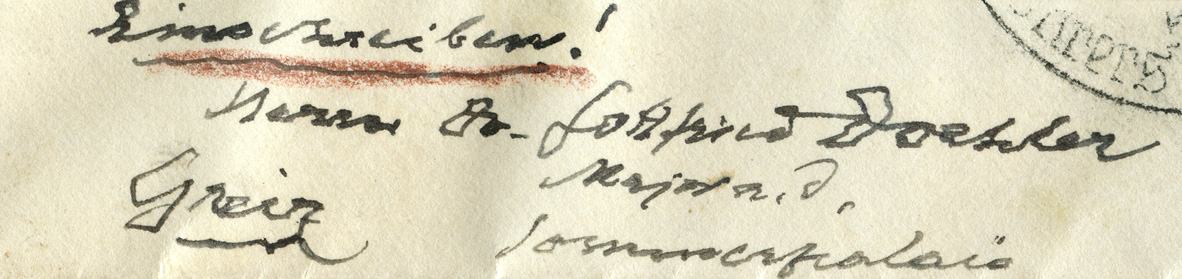 Einschreiben!
Herrn Dr. Gottfried Doehler
Major a. D.
Greiz
Sommerpalais